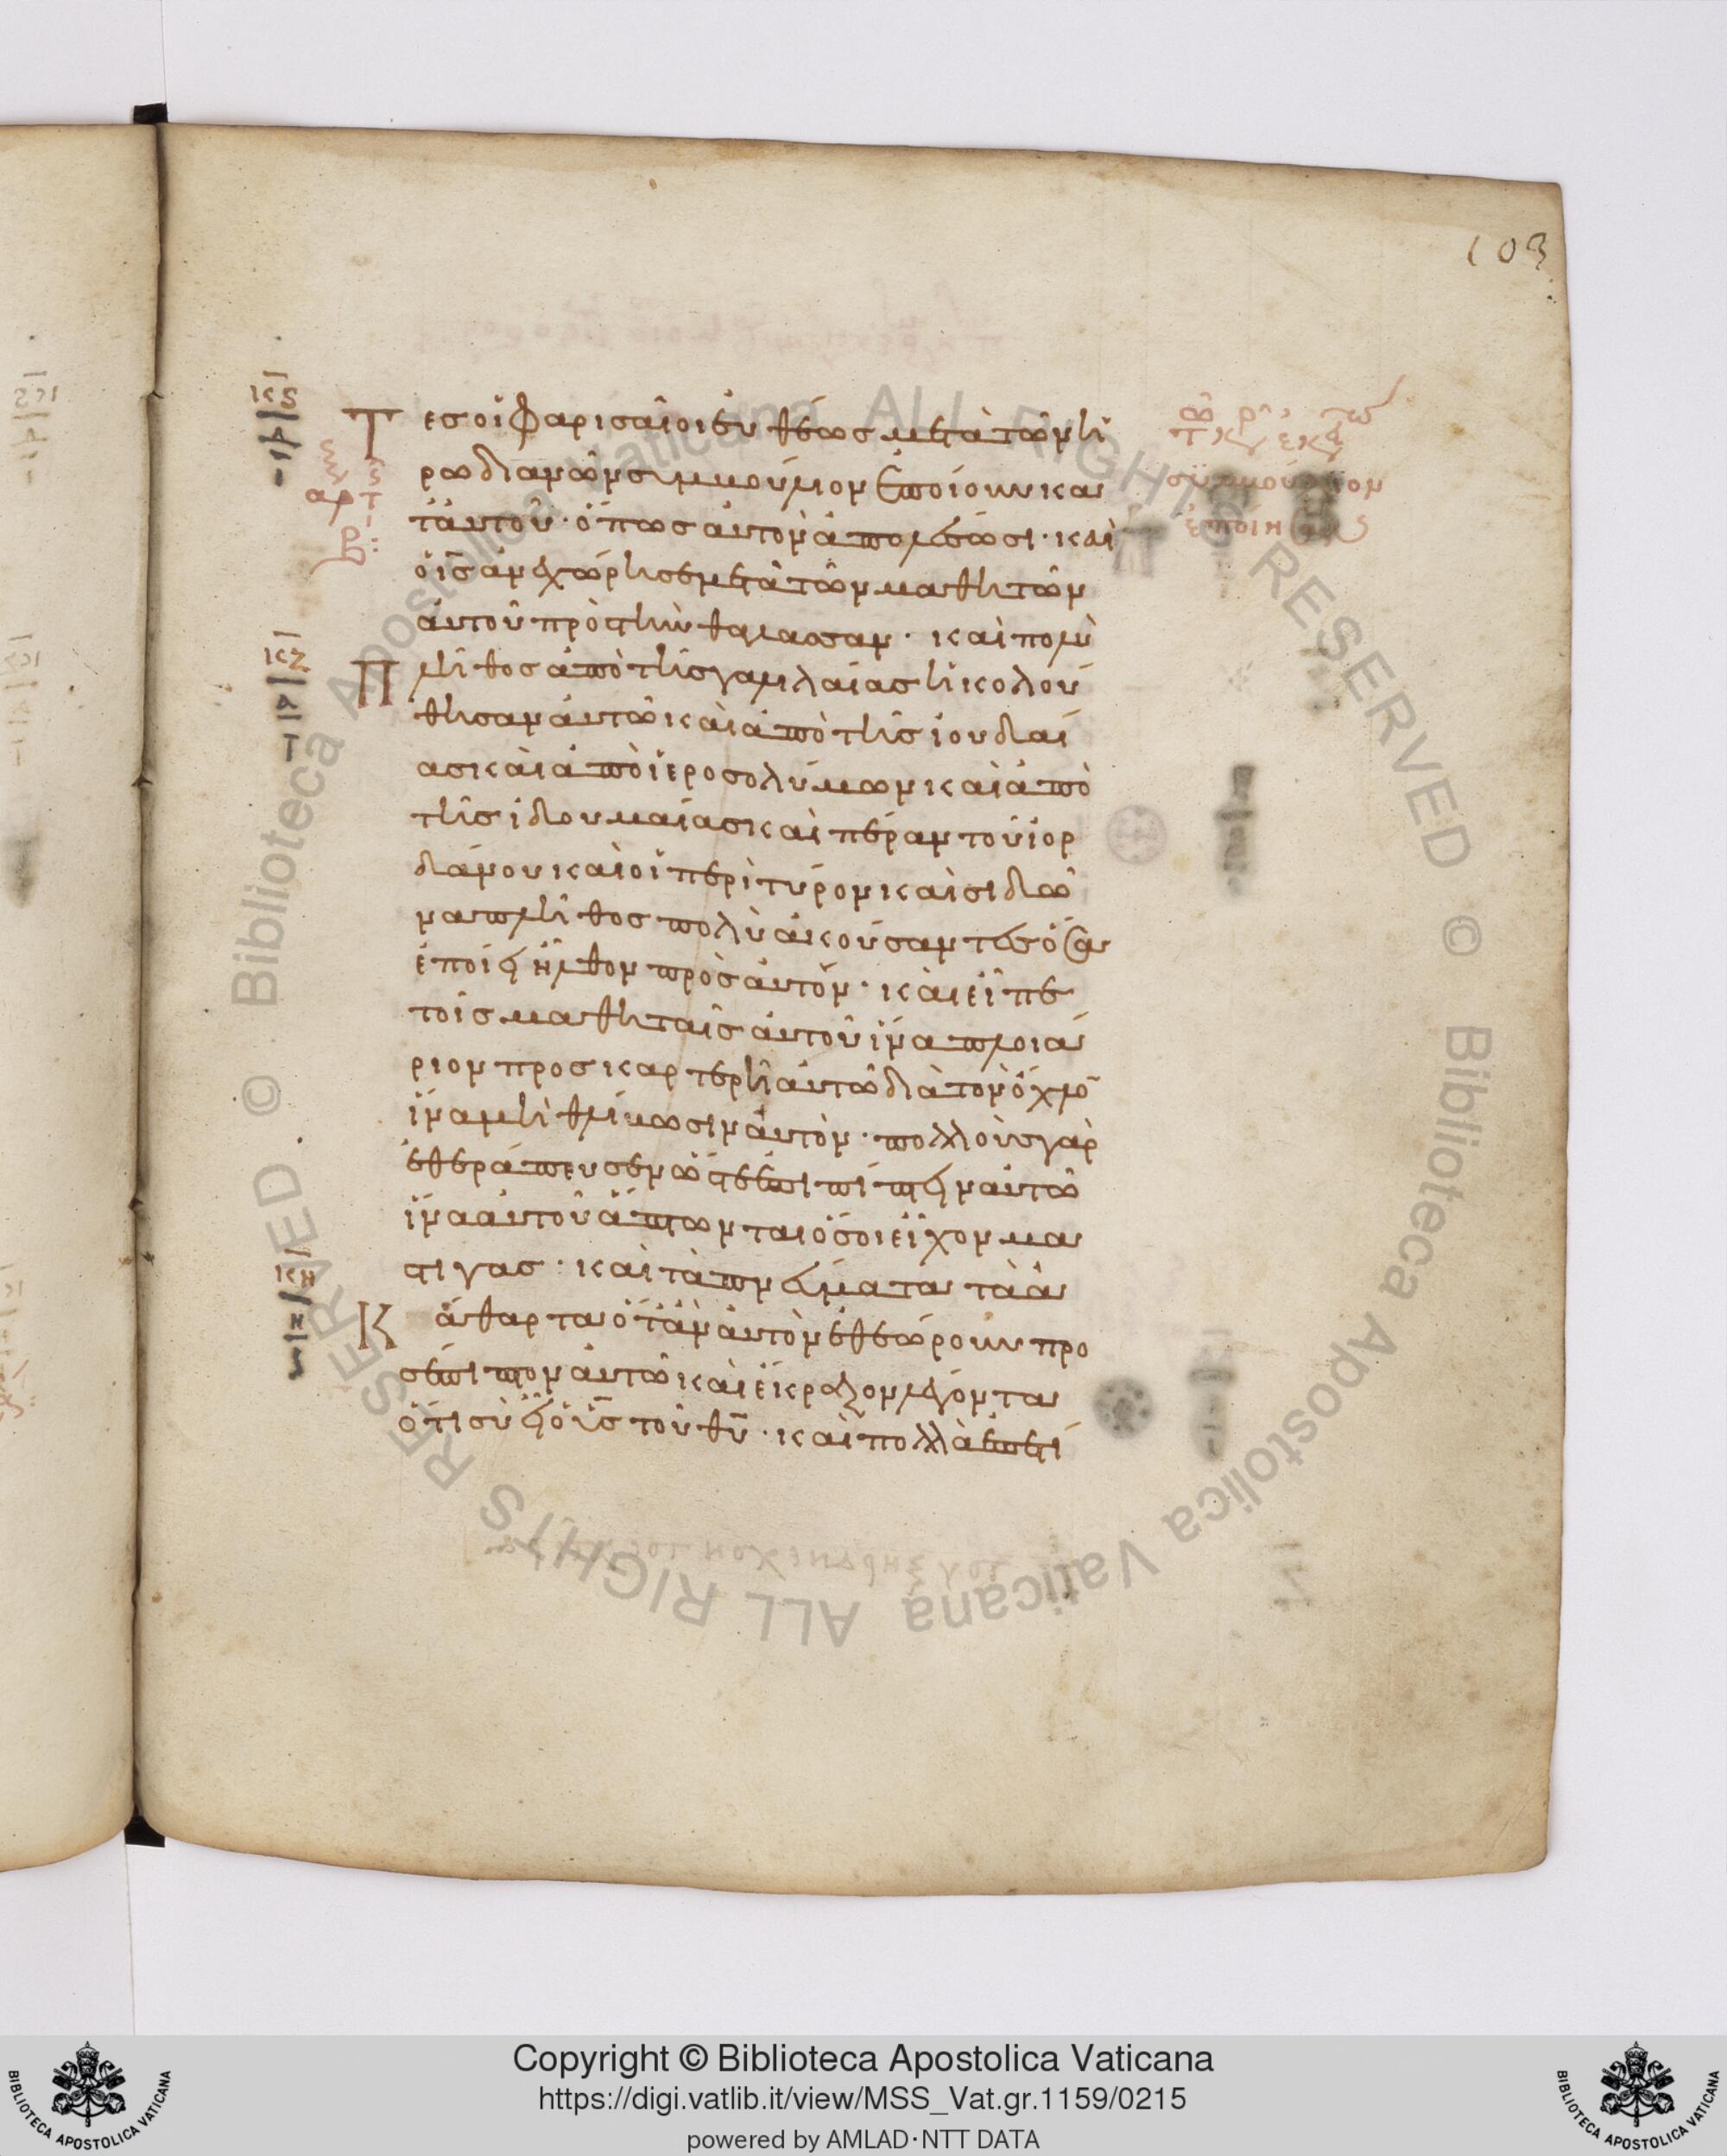 103
κϛ
Τ εσ οἱ φαρισαῖοι εὐθέωσ μετὰ τῶν ἡ
ρωδιανῶν συμβούλιον ἐποίουν κα
τ' αὐτοῦ· ὅπωσ αὐτὸν ἀπολέσωσι· καὶ
ὁ ἰ̅σ̅ ἀνεχώρησεν μετὰ τῶν μαθητῶν
αὐτοῦ πρὸσ τὴν θάλασσαν· καὶ πολὺ
κζ
Π λῆθοσ ἀπὸ τῆσ γαλιλαίασ ἠκολού
θησαν αὐτῶ καὶ ἀπὸ τῆσ ἰουδαί
ασ καὶ ἀπὸ ἱεροσολύμων καὶ ἀπὸ
τῆσ ἰδουμαίασ καὶ πέραν τοῦ ἰορ
δάνου καὶ οἱ περὶ τύρον καὶ σιδῶ
να πλῆθοσ πολὺ ἀκούσαντεσ ὅσα
ἐποίει ἦλθον πρὸσ αὐτόν· καὶ εἶπε
τοῖσ μαθηταῖσ αὐτοῦ ἵνα πλοιά
ριον προσκαρτερῆ αὐτῶ διὰ τὸν ὄχλο̅
ἵνα μὴ θλίβωσιν αὐτόν· πολλοὺσ γὰρ
ἐθεράπευσεν ὥστε ἐπιπίπτειν αὐτῶ
ἵνα αὐτοῦ ἅπτωνται ὅσοι εἶχον μά
στιγασ· καὶ τὰ πνεύματα τὰ ἀ
κη
Κ άθαρτα ὅταν αὐτὸν ἐθεώρουν προ
σέπιπτον αὐτῶ καὶ ἔκραζον λέγοντα
ὅτι σὺ εἶ ὁ υ̅σ̅ τοῦ θ̅υ̅· καὶ πολλὰ ἐπετί
Copyright © Biblioteca Apostolica Vaticana
https://digi.vatlib.it/view/MSS_Vat.gr.1159/0215
powered by AMLAD·NTT DATA
BIBLIOTECA APOSTOLICA VATICANA
BIBLIOTECA APOSTOLICA VATICANA